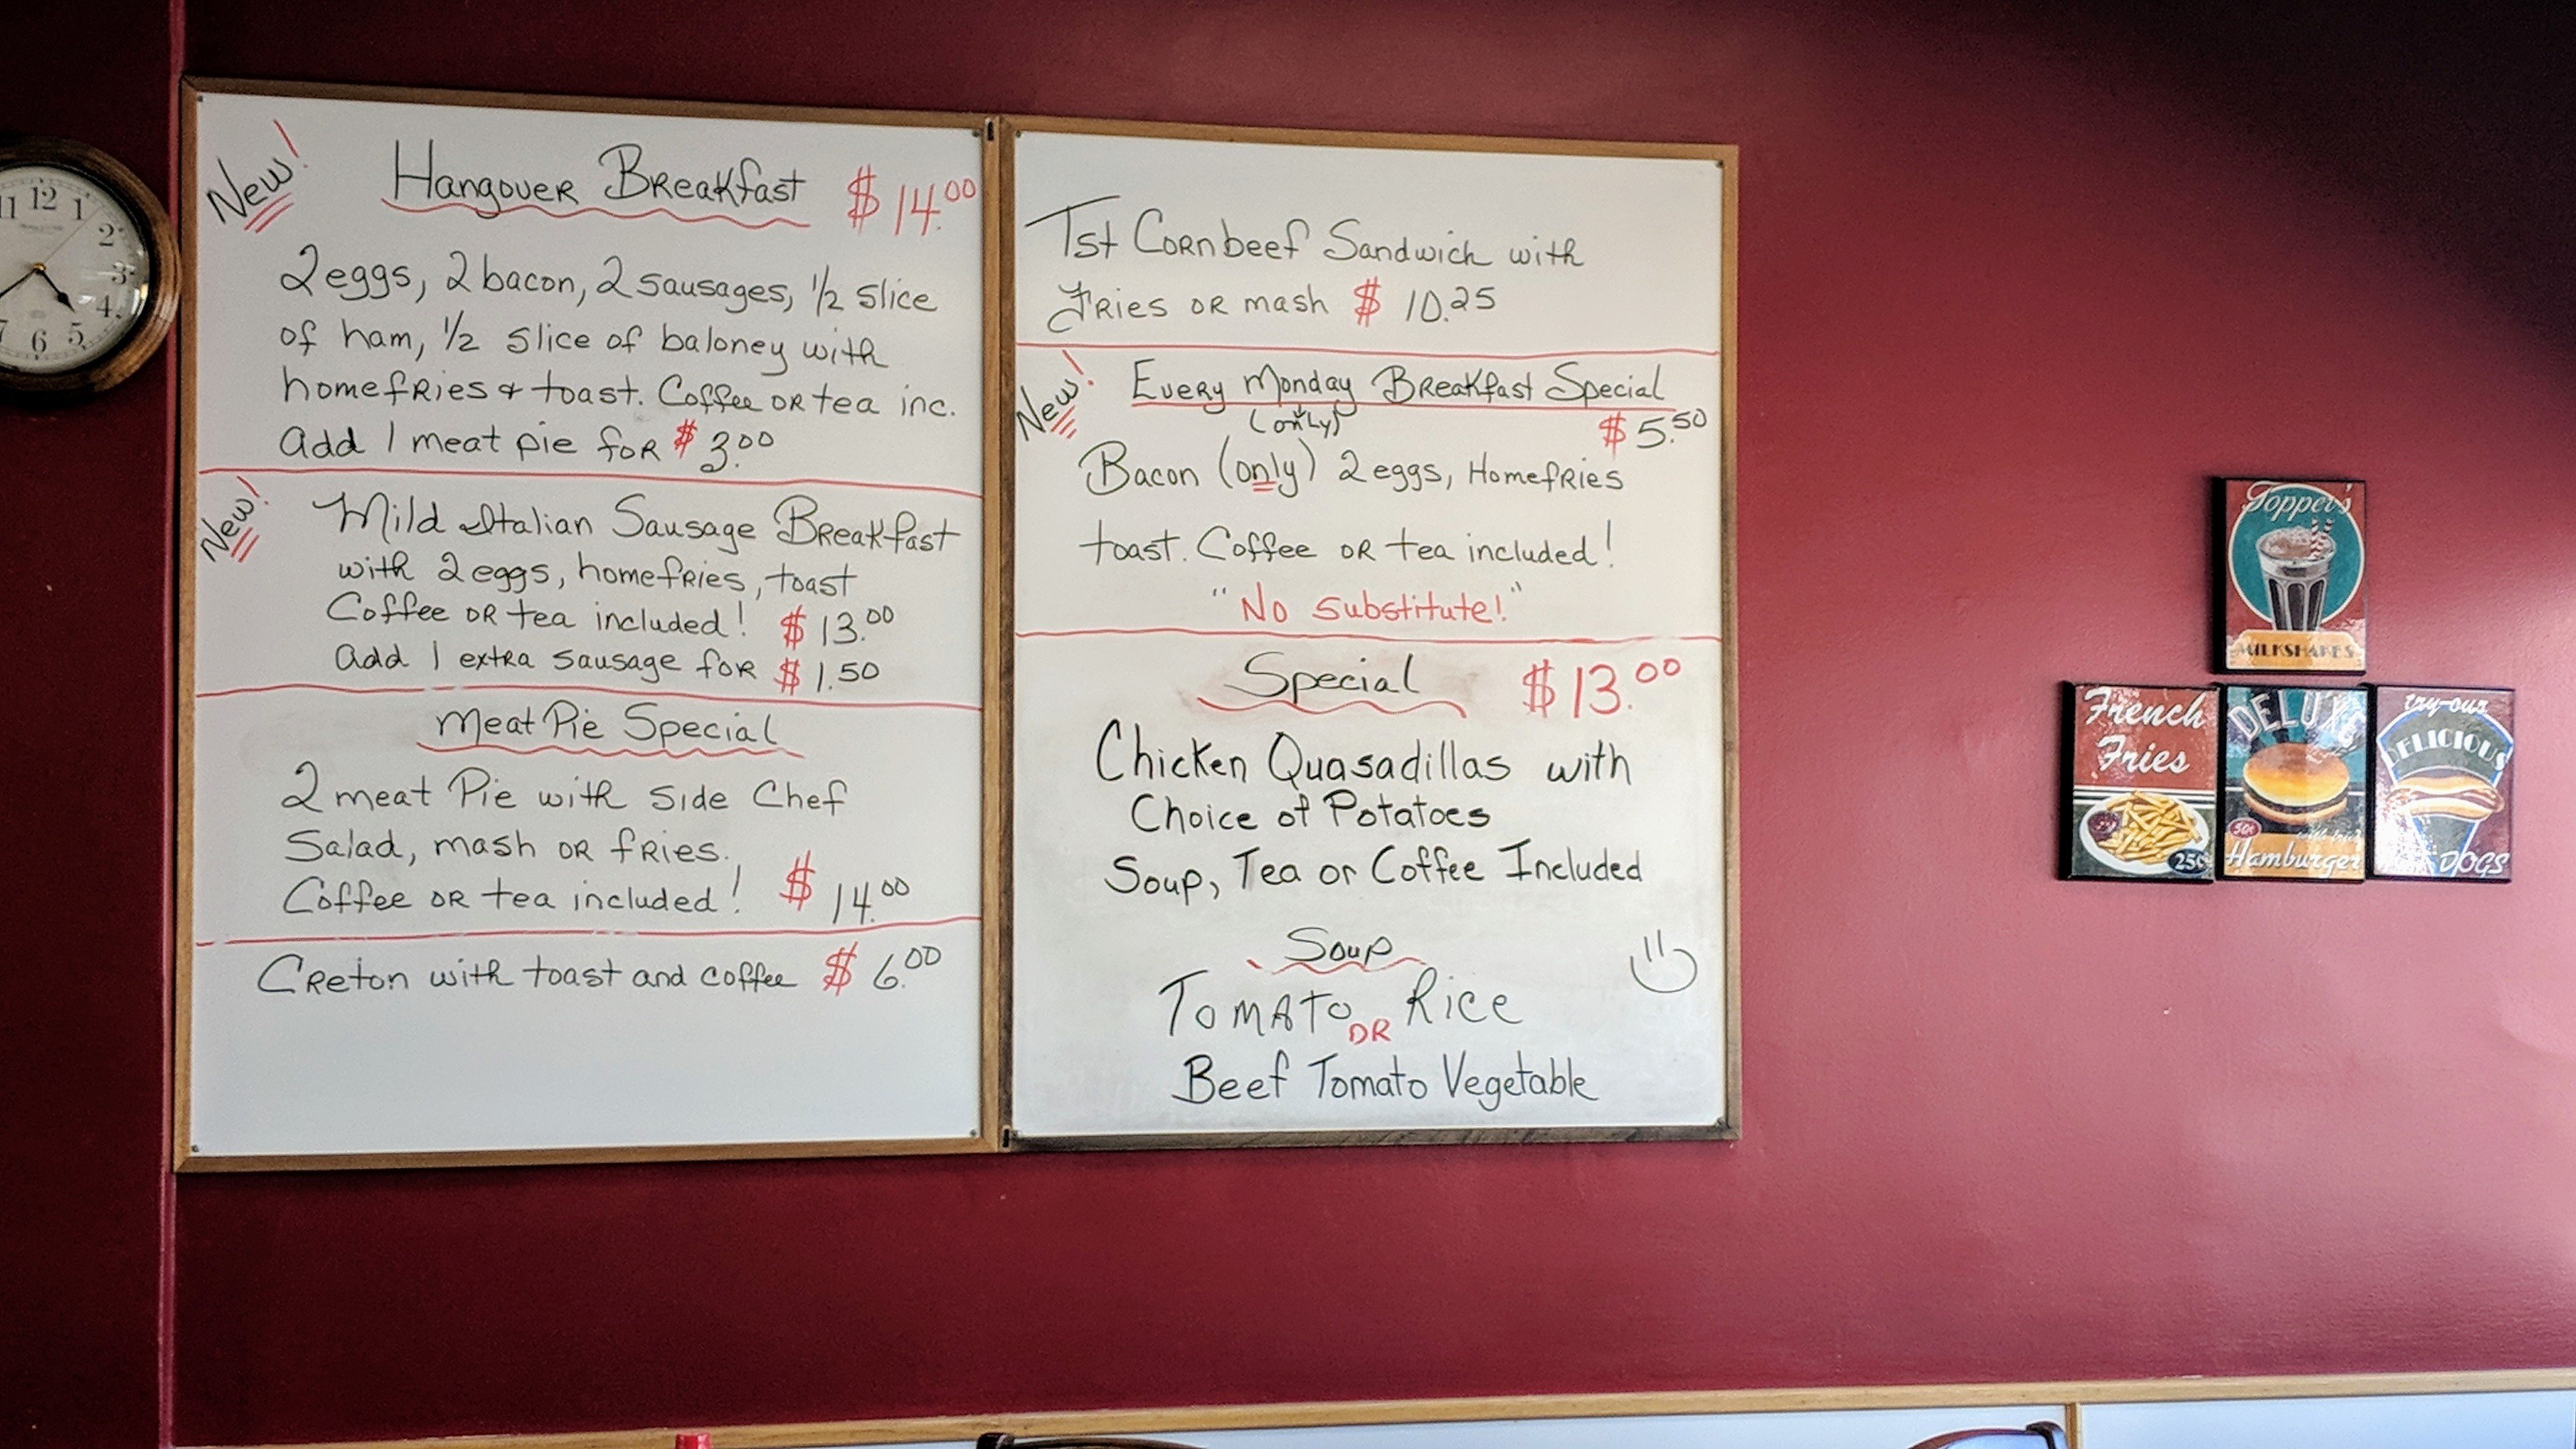 11 12 1
2
3
4
5
6
7
New!
Hangover Breakfast $14.00
2 eggs, 2 bacon, 2 sausages, 1/2 slice
of ham, 1/2 slice of baloney with
homefries & toast. Coffee or tea inc.
add 1 meat pie for $3.00
New!
Mild Italian Sausage Breakfast
with 2 eggs, homefries, toast
Coffee or tea included! $13.00
add 1 extra sausage for $1.50
Meat Pie Special
2 meat Pie with side Chef
Salad, mash or fries.
Coffee or tea included! $14.00
Creton with toast and coffee $6.00
Tst Cornbeef Sandwich with
Fries or mash $10.25
New!
Every Monday Breakfast Special
(only)
$5.50
Bacon (only) 2 eggs, Homefries
toast. Coffee or tea included!
"No substitute!"
Special $13.00
Chicken Quasadillas with
Choice of Potatoes
Soup, Tea or Coffee Included
Soup
Tomato or Rice
Beef Tomato Vegetable
Topper's
MILKSHAKES
French
Fries
25¢
DELUXE
50¢
Hamburger
try-our
DELICIOUS
DOGS